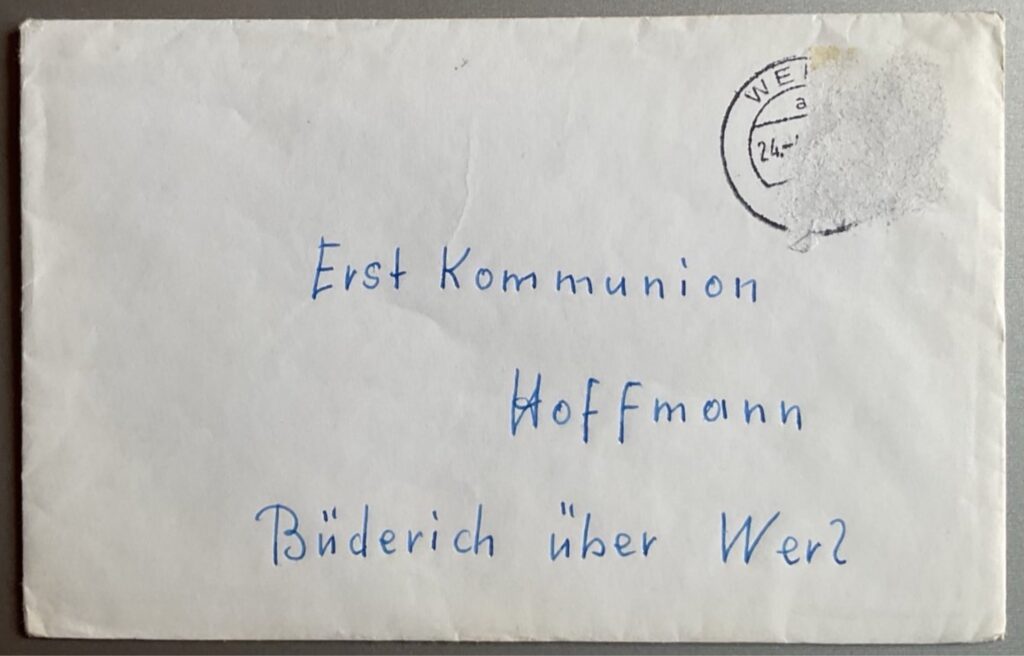 a
24.-
Erst Kommunion
Hoffmann
Büderich über Werl